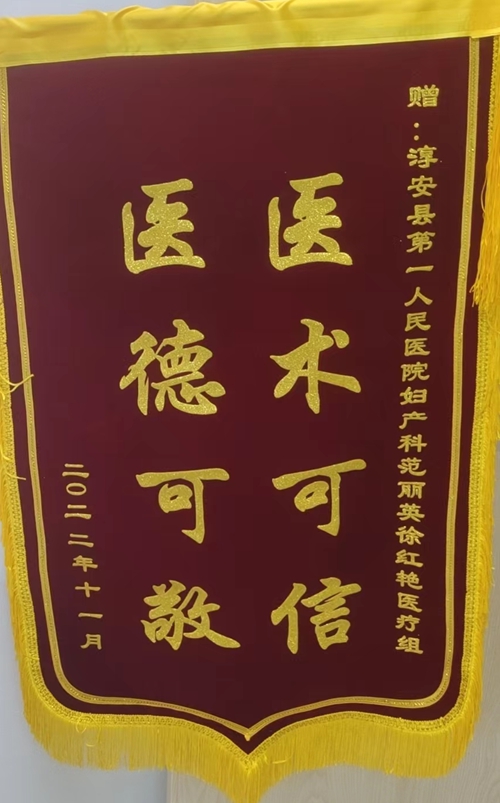 赠：淳安县第一人民医院妇产科范丽英徐红艳医疗组
医术可信
医德可敬
二〇二二年十一月